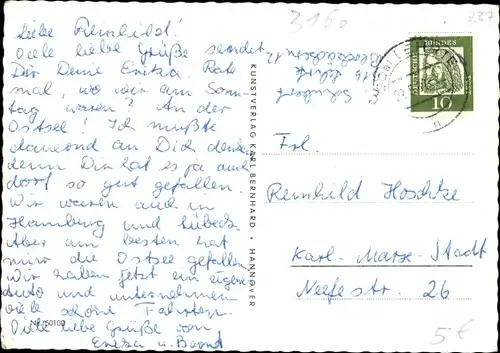 Liebe Reinhild!
Viele liebe Grüße sendet
Dir Deine Erika. Rate
mal, wo wir am Sonn
tag waren? An der
Ostsee! Ich mußte
dauernd an Dich denken
denn Dir hat es ja auch
dort so gut gefallen.
Wir waren auch in
Hamburg und Lübeck.
Aber am besten hat
mir die Ostsee gefallen
Wir haben jetzt ein eigenes
Auto und unternehmen
viele schöne Fahrten.
Viele liebe Grüße von
Erika u. Bernd
Nr. 50100
KUNSTVERLAG KARL BERNHARD • HANNOVER
3160
Schubert
316 Lehrte
DEUTSCHE BUNDESPOST
10
Frl.
Reinhild Hoschke
Karl-Marx-Stadt
Neefestr. 26
5€